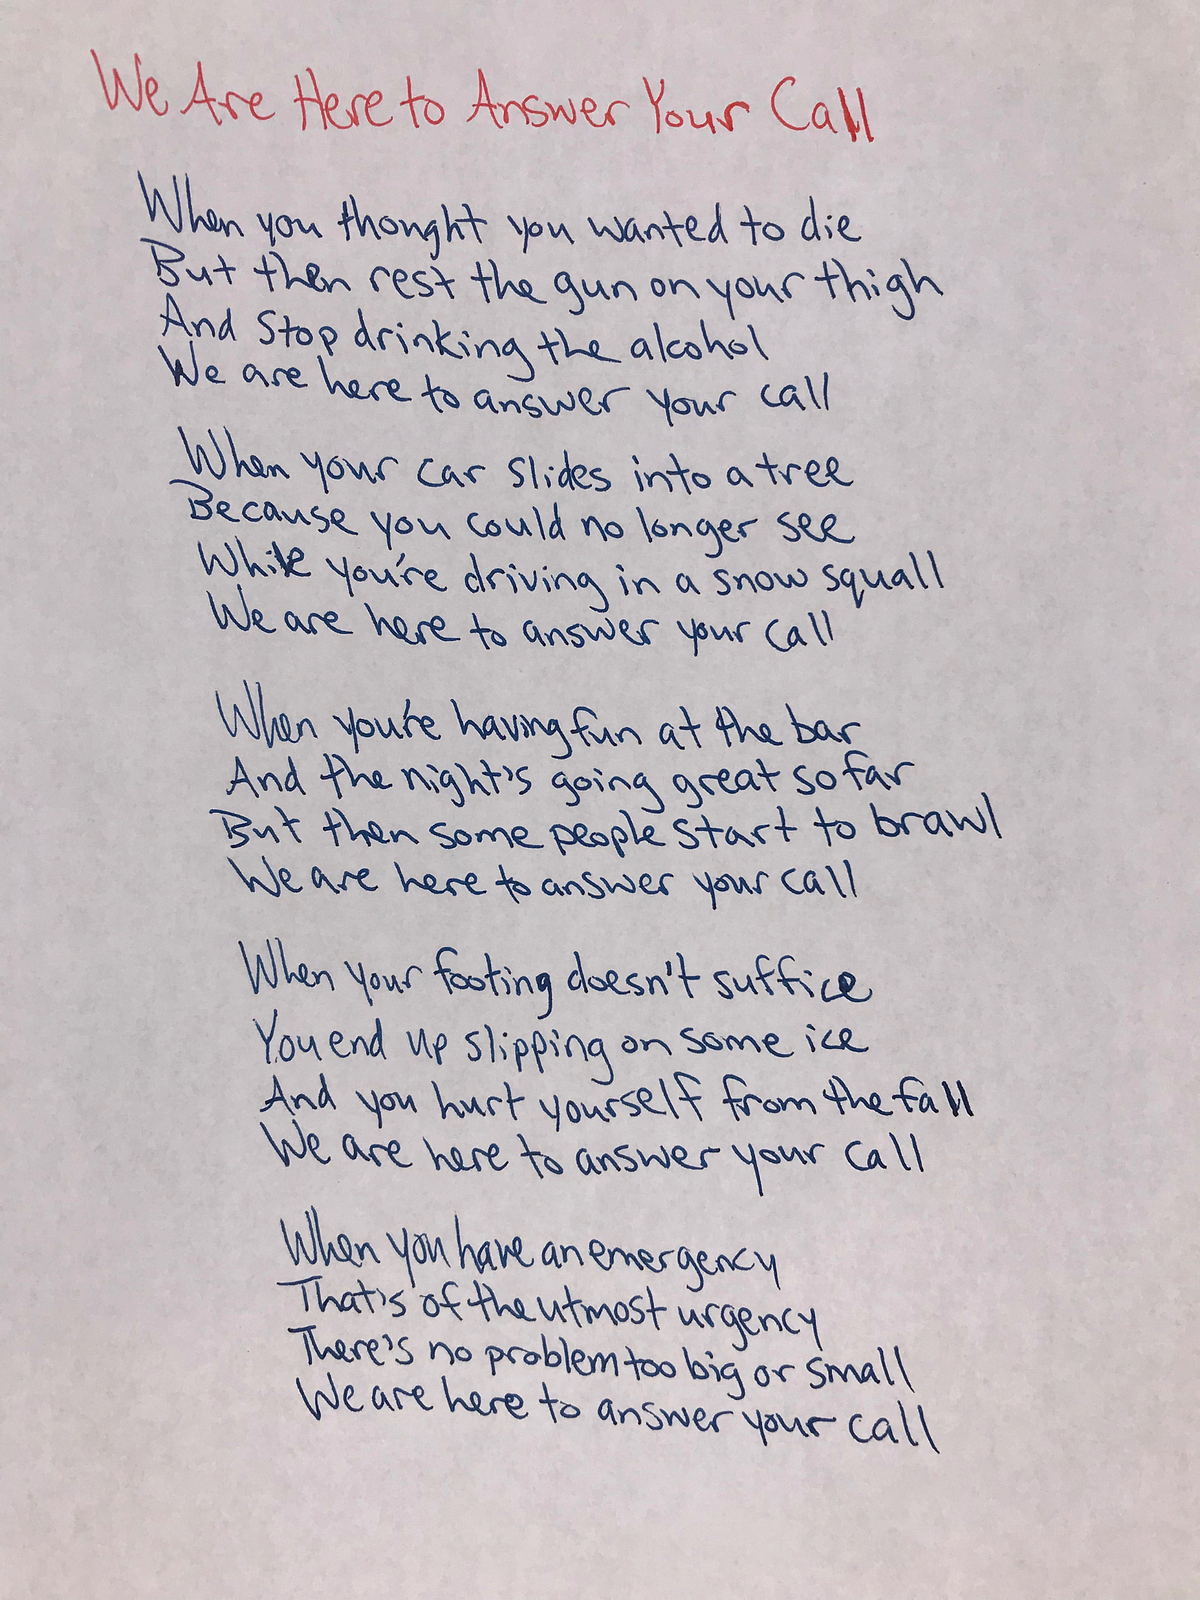 We Are Here to Answer Your Call
When you thought you wanted to die
But then rest the gun on your thigh
And stop drinking the alcohol
We are here to answer your call
When your car slides into a tree
Because you could no longer see
While you're driving in a snow squall
We are here to answer your call
When you're having fun at the bar
And the night's going great so far
But then some people start to brawl
We are here to answer your call
When your footing doesn't suffice
You end up slipping on some ice
And you hurt yourself from the fall
We are here to answer your call
When you have an emergency
That's of the utmost urgency
There's no problem too big or small
We are here to answer your call